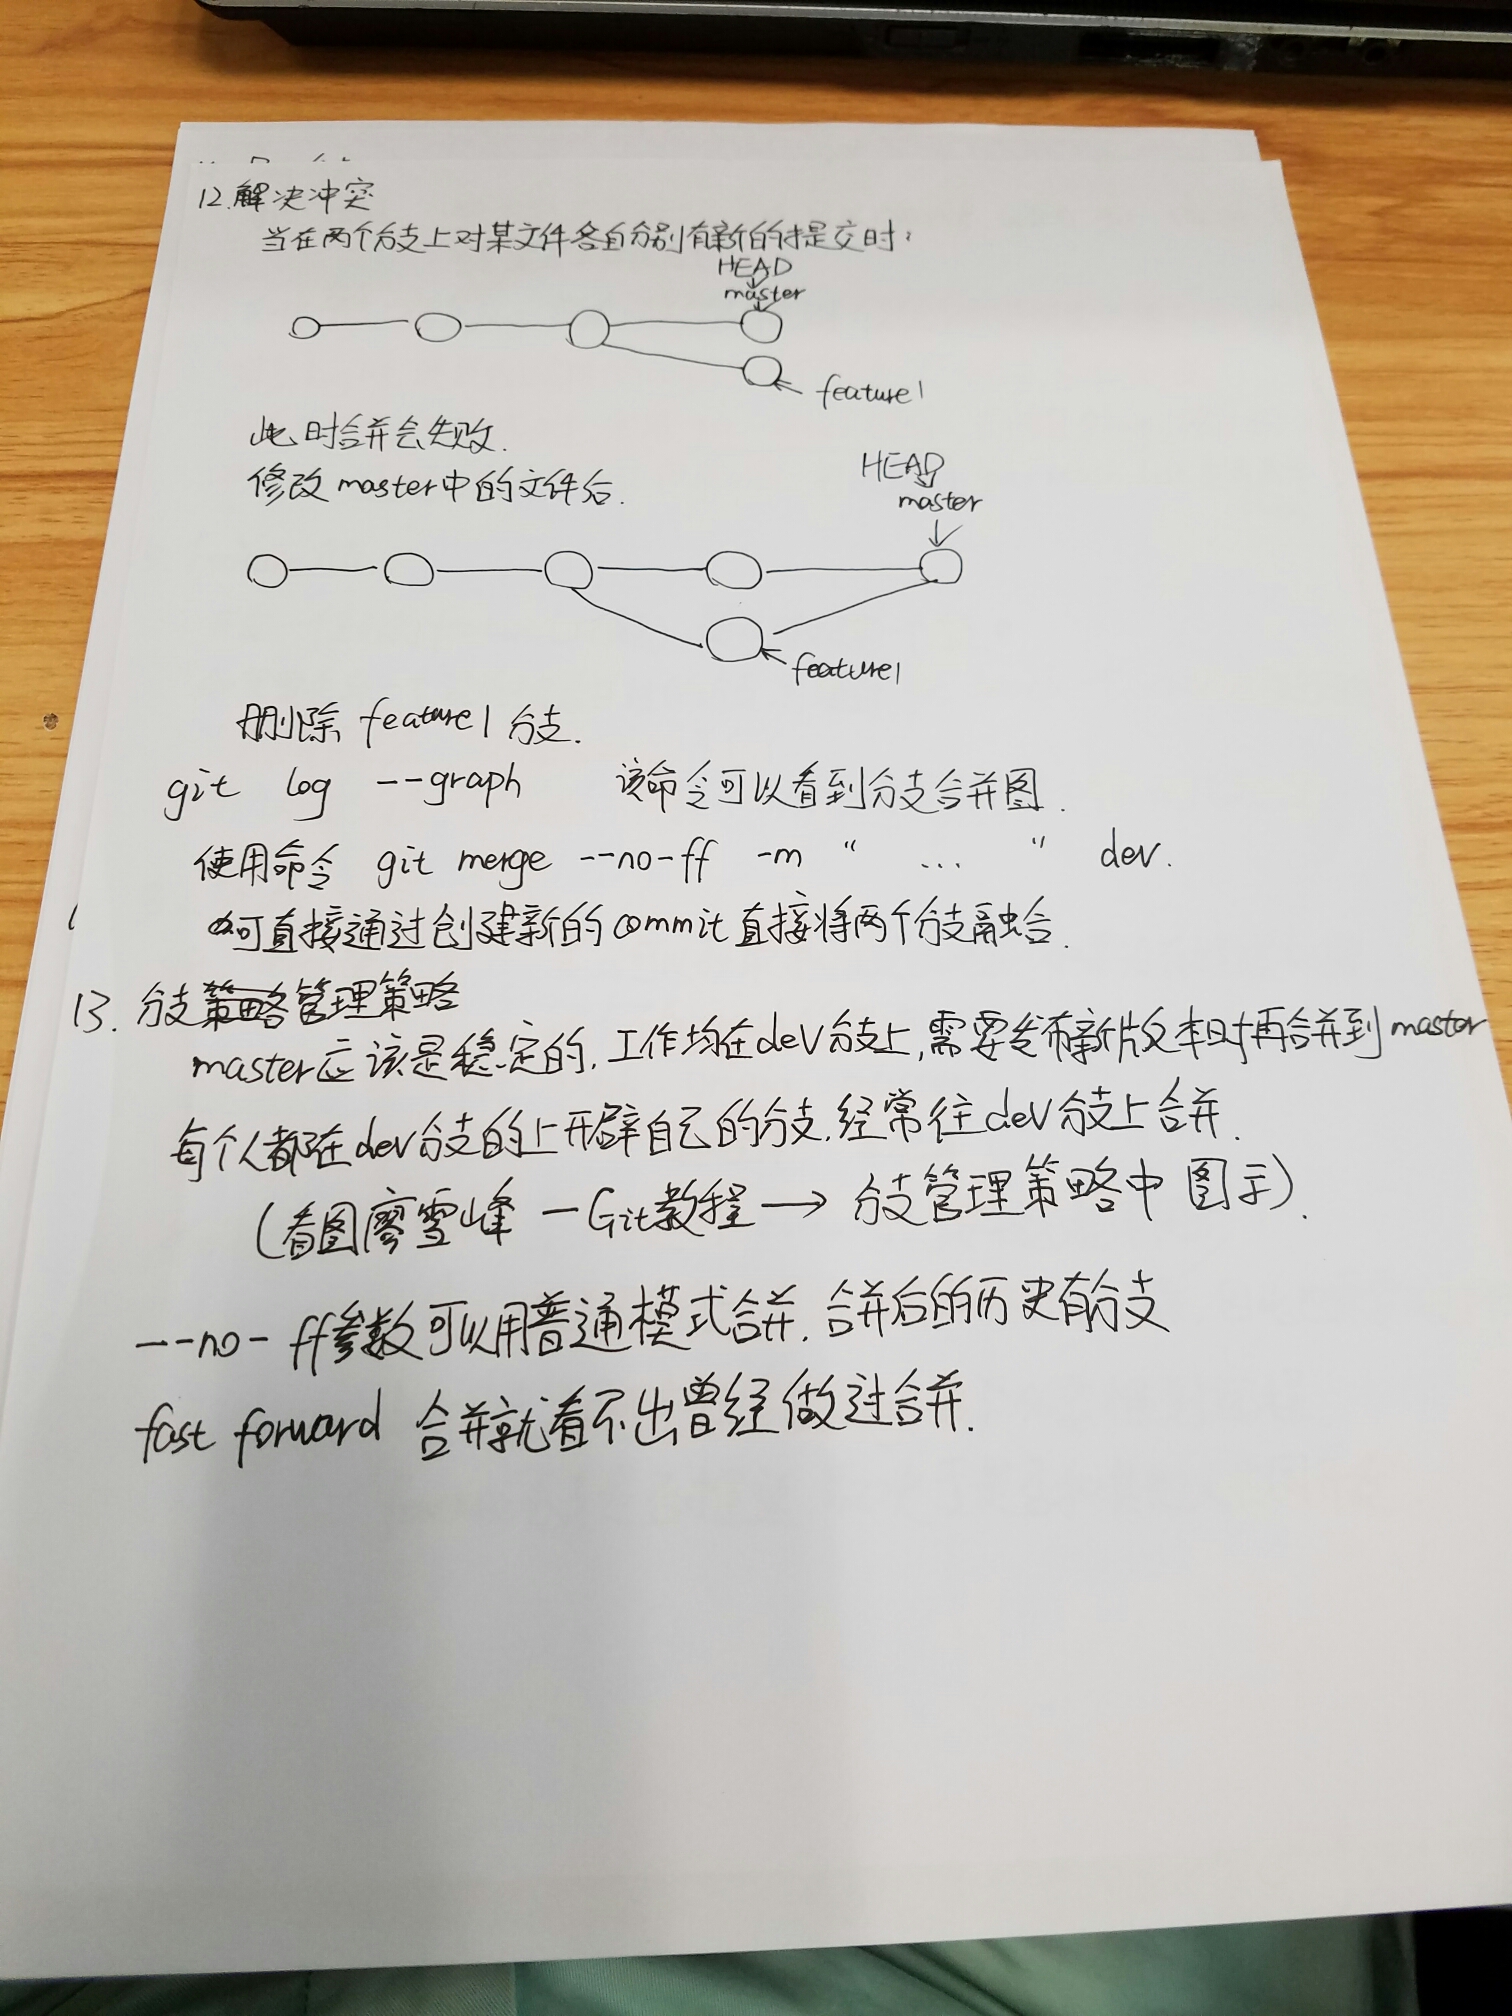 12.解决冲突
当在两个分支上对某文件各自分别有新的提交时:
HEAD
master
feature1
此时合并会失败.
修改master中的文件后.
HEAD
master
feature1
删除 feature1 分支.
git log --graph 该命令可以看到分支合并图.
使用命令 git merge --no-ff -m " ... " dev.
可直接通过创建新的commit直接将两个分支融合.
13. 分支管理策略
master应该是稳定的,工作均在dev分支上,需要发布新版本时再合并到master
每个人都在dev分支的上开辟自己的分支,经常往dev分支上合并.
(看图廖雪峰—Git教程→分支管理策略中图示).
--no-ff参数可以用普通模式合并,合并后的历史有分支
fast forward 合并就看不出曾经做过合并.